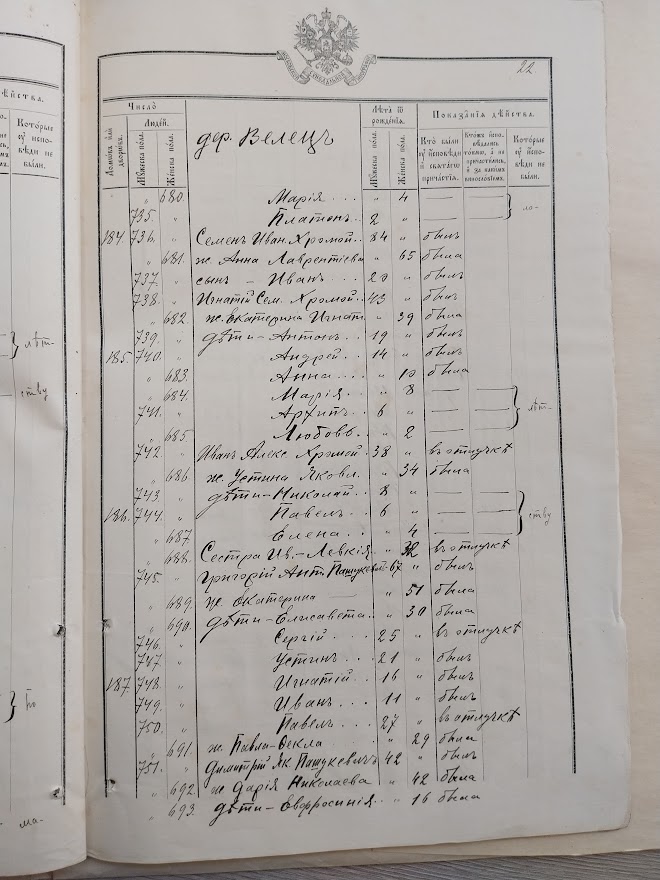 22.
Число
Людей.
Домовъ или дворовъ.
Мужеска пола.
Женска пола.
дер. Велецъ
Лѣта ѿ рожденія.
Мужеска пола.
Женска пола.
Показанія дѣйства.
Кто были оу исповѣди и святаго причастія.
Которые оу исповѣди не были.
" 680. Марія . . . " 4 — —
735. " Платонъ . . 2 " — — } ма-
184. 736. " Семенъ Иван. Хромой . . 84 " былъ
" 681. ж. Анна Лаврентіева " 65 была
737. " сынъ - Иванъ . . . 20 " былъ
738. " Игнатій Сем. Хромой . . 43 " былъ
" 682. ж. Екатерина Игнат. " 39 была
739. " дѣти - Антонъ . . 19 " былъ
185. 740. " Андрей . . 14 " былъ
" 683. Анна . . . " 10 была
" 684. Марія . . . " 8 — —
741. " Архипъ . . 6 " — — } лѣт-
" 685. Любовь . . " 2 — —
742. " Иванъ Алекс Хромой . 38 " въ отлучкѣ
" 686. ж. Устина Яковл. " 34 была
743 " дѣти - Николай . . 8 " — —
186. 744. " Павелъ . . 6 " — — } ству
" 687. Елена . . . " 4 — —
" 688. Сестра Ив. - Левкія . " 32 въ отлучкѣ
745. " Григорій Ант. Пашукевич 67 " былъ
" 689. ж. Екатерина — " 51 была
" 690. дѣти - Елисавета . . " 30 была
746. " Сергій . . . 25 " въ отлучкѣ
747. " Устинъ . . . 21 " былъ
187. 748. " Игнатій . . 16 " былъ
749. " Иванъ . . . 11 " былъ
750. " Павелъ . . . 27 " въ отлучкѣ
" 691. ж. Павла - Фекла . . " 29 была
751. " Димитрій Як Пашукевичъ 42 " былъ
" 692. ж Дарія Николаева " 42 была
" 693. дѣти - Евфросинія . . " 16 была
ѣйства.
Которые оу исповѣди не были.
} лѣт-
ству
} по
ма-